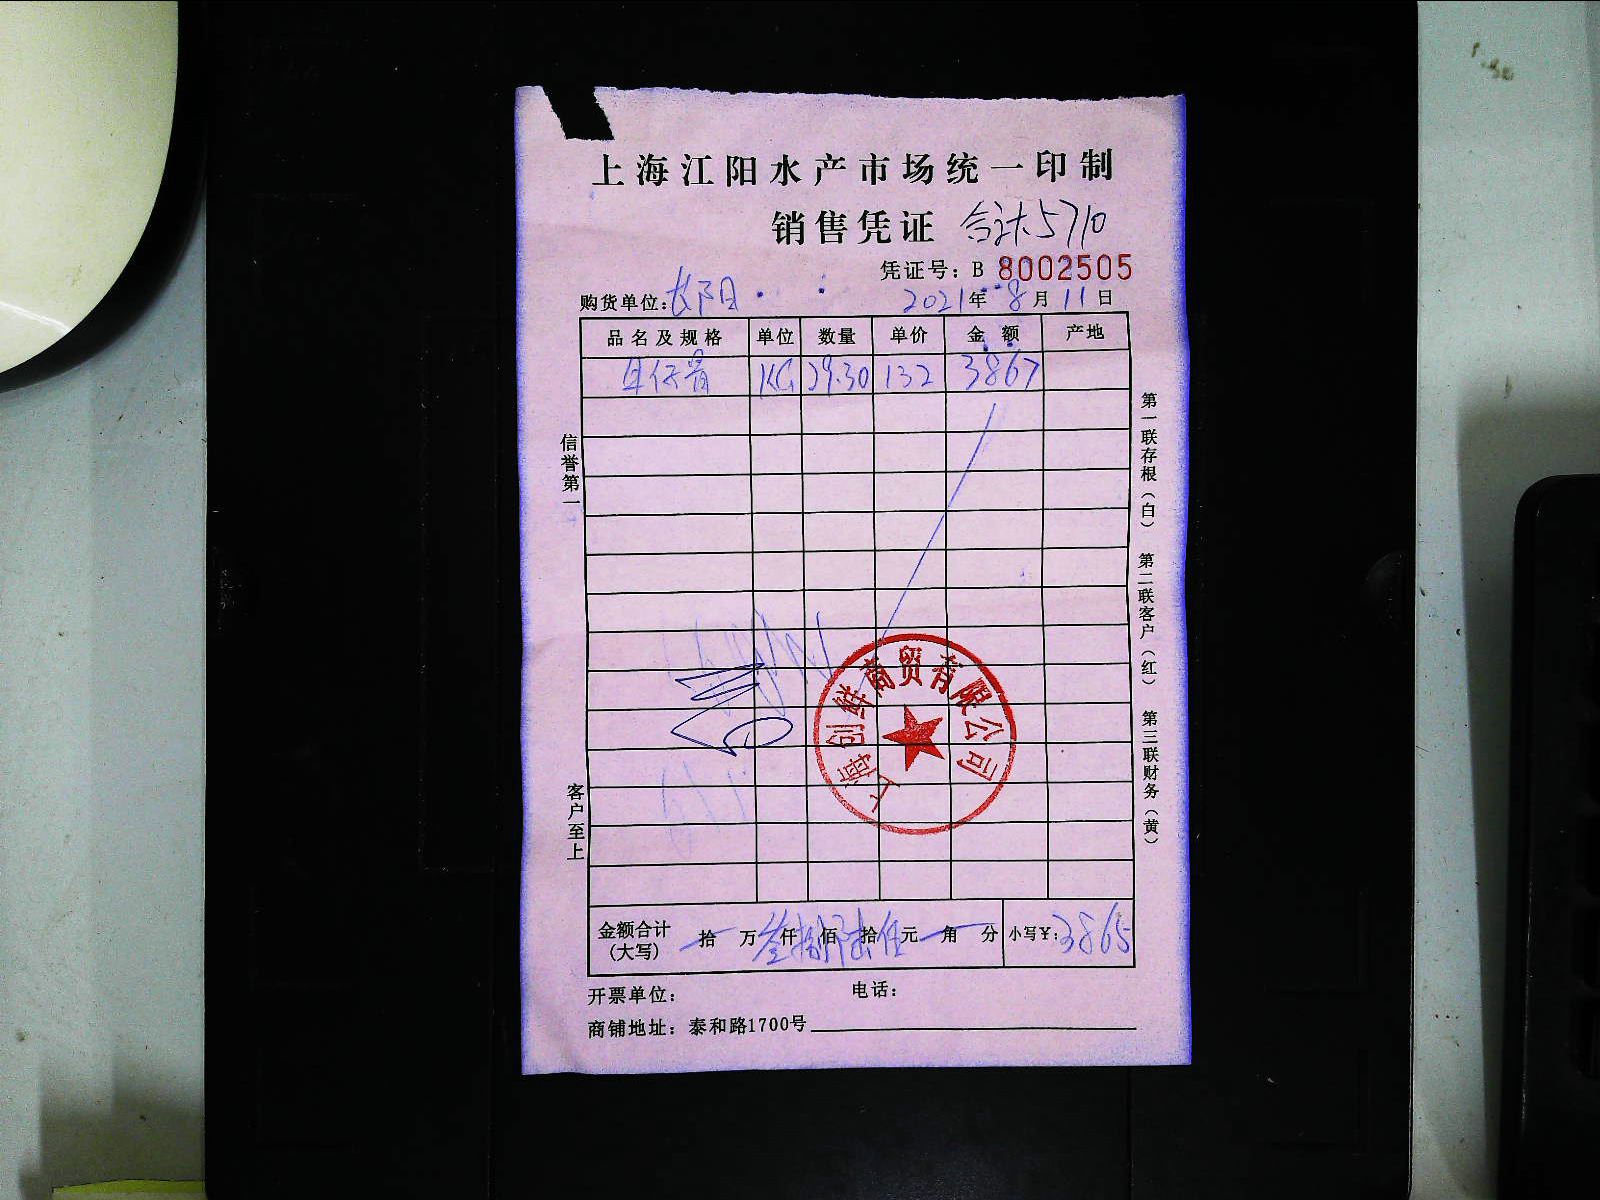 上海江阳水产市场统一印制
销售凭证 合计5710
凭证号：B 8002505
购货单位：长阳 2021年8月11日
品名及规格 单位 数量 单价 金额 产地
KG 29.30 132 3867
信誉第一
客户至上
第一联存根（白） 第二联客户（红） 第三联财务（黄）
上海创鲜商贸有限公司
金额合计 拾 万叁仟捌佰陆拾伍元 角 分 小写￥：3865
（大写）
开票单位： 电话：
商铺地址：泰和路1700号